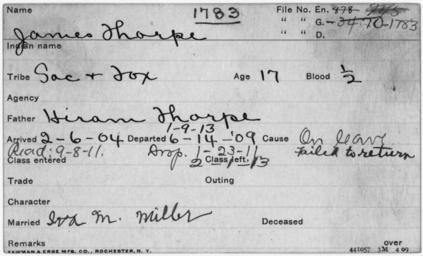 Name 1783 File No. En.
James Thorpe " " G. 3470-1783
Indian name " " D.
Tribe Sac & Fox Age 17 Blood 1/2
Agency
Father Hiram Thorpe
1-9-13
Arrived 2-6-04 Departed 6-14-'09 Cause On leave
Read: 9-8-11. Drop. 1-23-11 failed to return
Class entered Class left.
Trade Outing
Character
Married Iva M. Miller Deceased
Remarks over
YAWMAN & ERBE MFG. CO., ROCHESTER, N. Y. 441057 3M 4 09